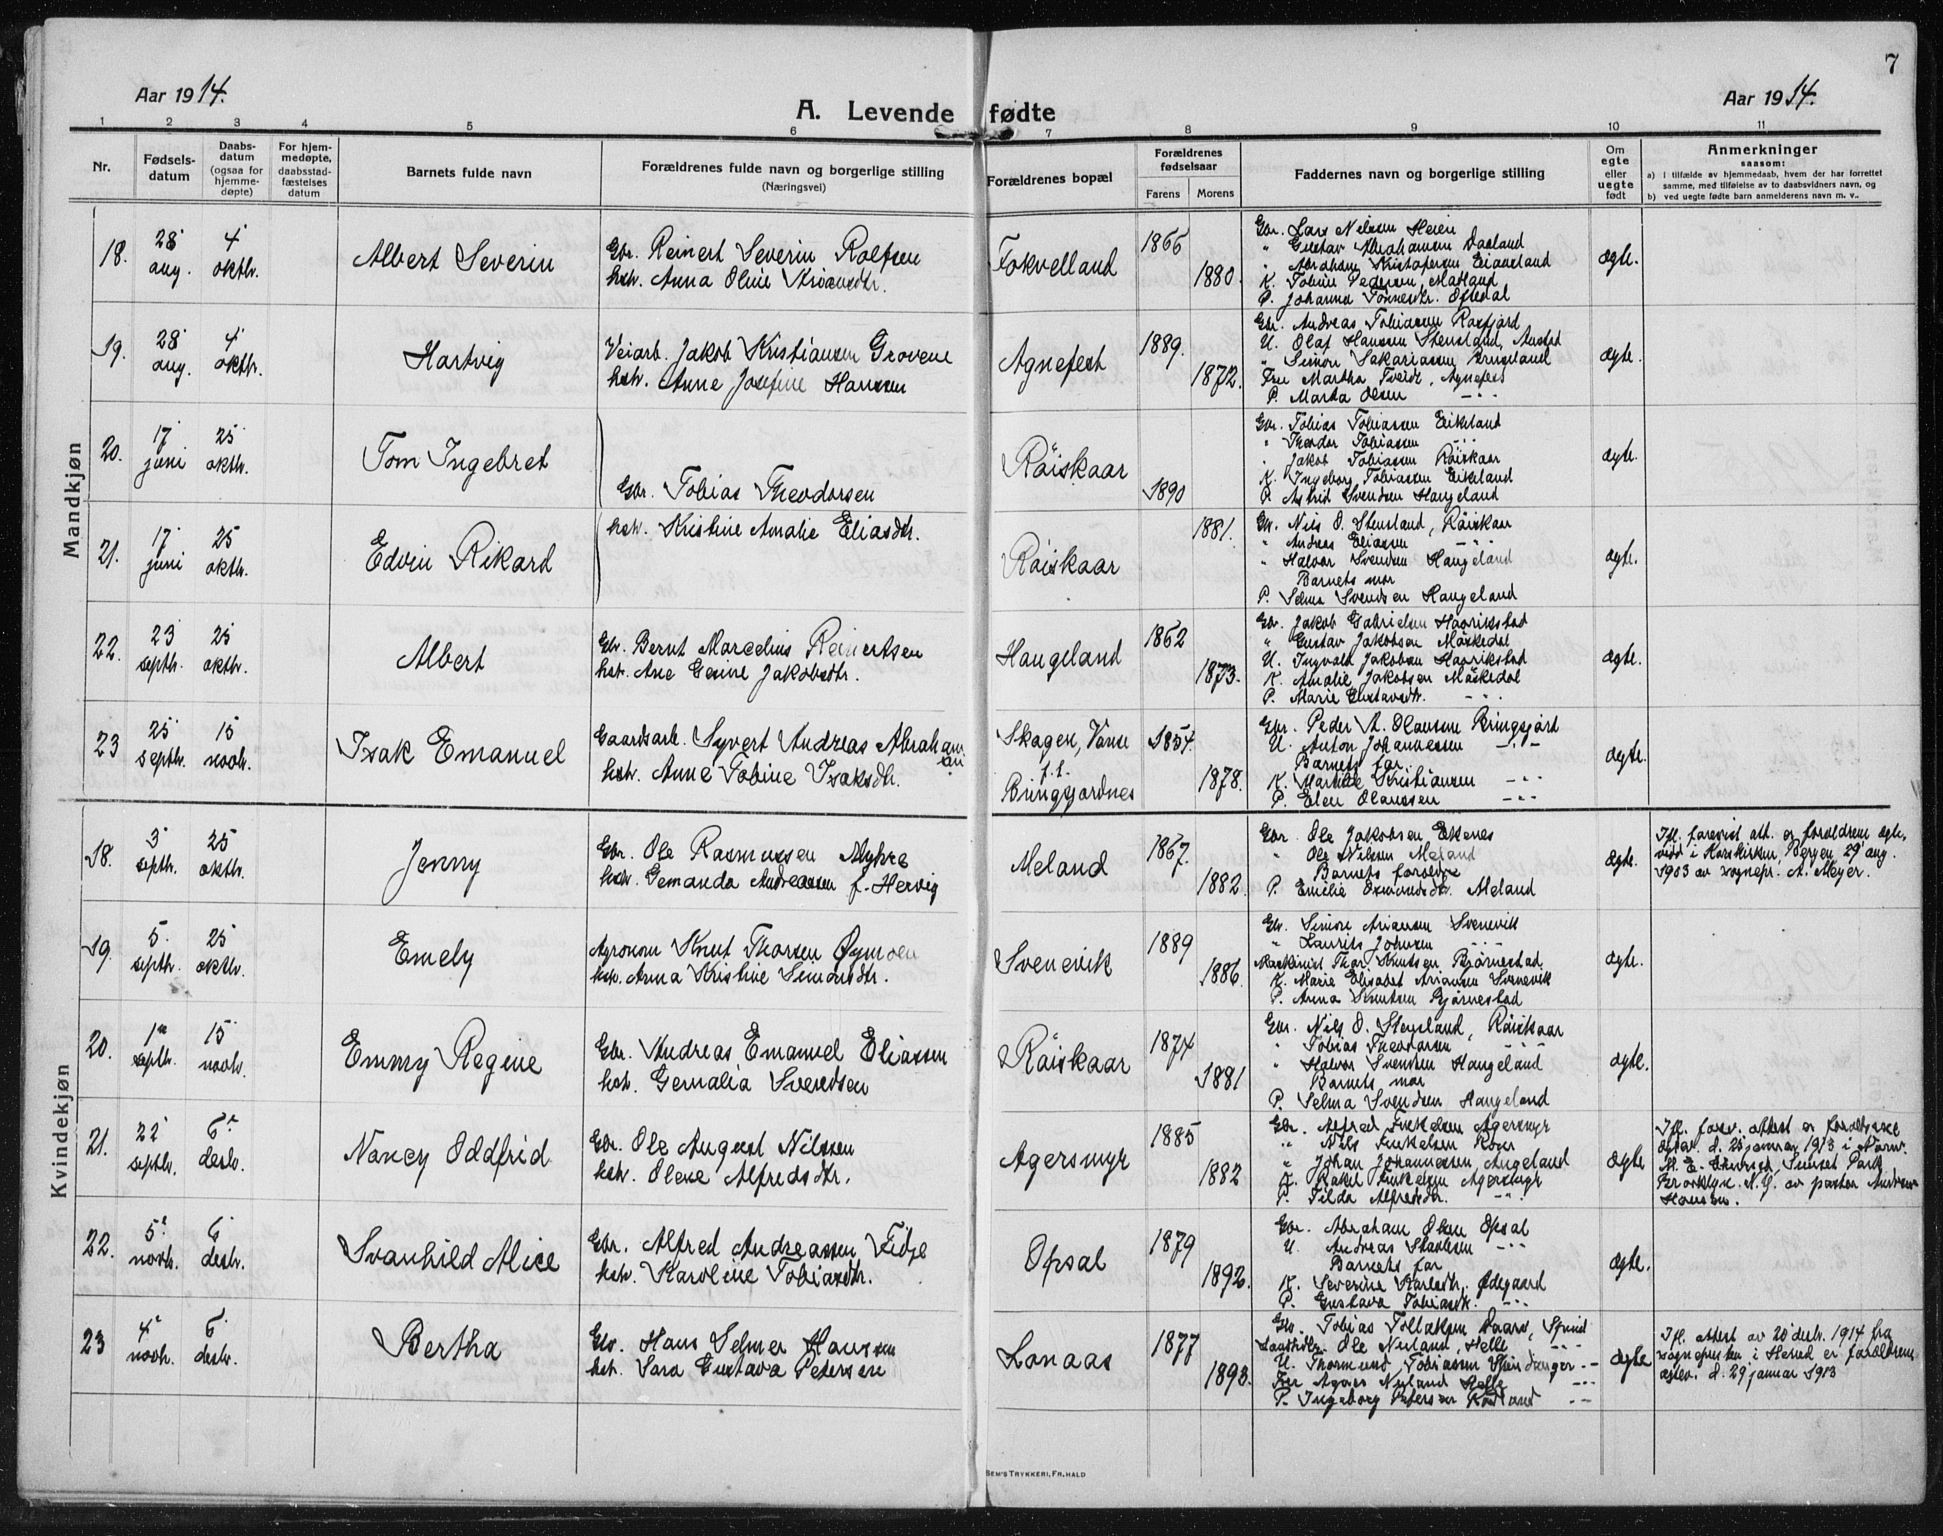 7
Aar 1914.
Aar 1914.
A. Levende fødte
1 2 3 4 5 6 7 8 9 10 11
Nr.
Fødsels-
datum
Daabs-
datum
(ogsaa for
hjemme-
døpte)
For hjem-
medøpte,
daabsstad-
fæstelses
datum
Barnets fulde navn
Forældrenes fulde navn og borgerlige stilling
(Næringsvei)
Forældrenes bopæl
Forældrenes
fødselsaar
Farens
Morens
Faddernes navn og borgerlige stilling
Om
egte
eller
uegte
født
Anmerkninger
saasom:
a) I tilfælde av hjemmedaab, hvem der har forrettet
samme, med tilføielse av to daabsvidners navn, og
b) ved uegte fødte barn anmelderens navn m. v..
Mandkjøn
18.
28
aug.
4
oktbr.
Albert Severin
Gbr. Reinert Severin Rolfsen
hstr. Anna Oline
Fokvelland
1866
1880.
Gbr. Lars Nilssen Heien
" Gustav Abrahamsen Daaland
" Abraham Kristofersen Eiaasland
K. Tobine Pedersen Mabland
P. Johanna Tønnesdtr. Oftedal
ægte.
19.
28
aug.
4
oktbr.
Hartvig
Veiarb. Jakob Kristiansen Grovene
hstr. Anne Josefine Hanssen
Agnefest
1889.
1872.
Gbr. Andreas Tobiassen Rosfjord
U. Olaf Hanssen Stensland, Austad
" Simon Sakariassen
Fru Martha Tveide, Agnefest
P. Marta Olsen -"-
ægte.
20.
17
juni
25
oktbr.
Tom Ingebret
Gbr. Tobias Theodorsen
Røiskaar
1890
Gbr. Tobias Tobiassen Eikeland
" Theodor Tobiassen -"-
" Jakob Tobiassen Røiskaar
K. Ingeborg Tobiassen Eikeland
P. Astrid Svendsen Haugeland
ægte.
21.
17
juni
25
oktbr.
Edvin Rikard
hstr. Kristine Amalie Eliasdtr.
Røiskaar
1881.
Gbr. Nils O. Stensland, Røiskaar
" Andreas Eliassen -"-
" Halvor Svendsen Haugeland
Barnets mor
P. Selma Svendsen Haugeland
ægte.
22.
23
septbr.
25
oktbr.
Albert
Gbr. Bernt Marcelius Reinertsen
hstr. Ane Gesine Jakobsdtr.
Haugeland
1862
1873.
Gbr. Jakob Gabrielsen Haarikstad
" Gustav Jakobsen Møskedal
U. Ingvald Jakobsen Haarikstad
K. Amalie Jakobsen Møskedal
P. Marie Gustavsdtr. -"-
ægte.
23
25
septbr.
15
novbr.
Isak Emanuel
Gaardsarb. Syvert Andreas Abraham-
sen
hstr. Anne Tobine Isaksdtr.
Skagen, Vanse
f.t.
Bringsjordnes
1854.
1878.
Gbr. Peder A. Olaussen Bringsjord
U. Anton Johannessen -"-
Barnets far
K. Martille Kristiansen -"-
P. Elen Olaussen -"-
ægte.
Kvindekjøn
18.
3
septbr.
25
oktbr.
Jenny
Gbr. Ole Rasmussen Myhre
hstr. Gemanda Andreassen f. Hervig
Meland
1867.
1882.
Gbr. Ole Jakobsen Ekenes
" Ole Nilsen Meland
Barnets forældre
P. Emilie Osmundsdtr. Meland
ægte.
Ifl. forevist att. er forældrene ægte-
viet i Korskirken, Bergen 29 aug.
1903 av sognepr. A. Meyer.
19.
5.
septbr.
25
oktbr.
Emely
Agronom Knut Thorsen Øymoen
hstr. Anna Kristine Simonsdtr.
Svenevik
1889
1886.
Gbr. Simon Ariansen Svenevik
" Laurits Johnsen -"-
Maskinist Thor Knutsen Bjørnestad
K. Marie Elisabet Ariansen Svenevik
P. Anna Knutsen Bjørnestad
ægte.
20.
1
septbr.
15
novbr.
Emmy Regine
Gbr. Andreas Emanuel Eliassen
hstr. Gemalia Svendsen
Røiskaar
1874
1881
Gbr. Nils O. Stensland, Røiskaar
" Tobias Theodorsen -"-
" Halvor Svendsen Haugeland
Barnets mor
P. Selma Svendsen Haugeland
ægte.
21.
22
septbr.
6
desbr.
Nancy Oddfrid
Gbr. Ole August Nilssen
hstr. Olene Alfredsdtr.
Agersmyr
1885
1882
Gbr. Alfred Agersmyr
" Nils
" Johan Johannessen, Augeland
K. Rakel Agersmyr
P. Tilda Alfredsdtr. -"-
ægte
Ifl. forev. attest er forældrene
ægtev. d. 25 januar 1913 i Norw.
M. E. Church, Sunset Park
Brooklyn. N.Y. av pastor Andrew
Hansen.
22.
5
novbr.
6
desbr.
Svanhild Alice
Gbr. Alfred Andreassen Fidje
hstr. Karoline Tobiasdtr.
Opsal
1879
1892.
Gbr. Abraham Olsen Opsal
U. Andreas -"-
Barnets far
K. Severine Karlsdtr. Ødegaard
P. Gustava Tobiasdtr. -"-
ægte.
23
4
novbr.
6
desbr.
Bertha
Gbr. Hans Selmer Hanssen
hstr. Sara Gustava Petersen
Lonaas
1877
1893.
Gbr. Tobias Tollaksen Daars, Spind
Ole Nuland, Helle -"-
U. Thormund Tobiassen -"-
Fru Agnes Nuland Helle -"-
P. Ingeborg Petersen -"-
ægte
Ifl. attest av 20 desbr. 1914 fra
sognepresten i Herred er forældrene
ægtev. d. 29 januar 1913
SEM'S TRYKKERI, FR.HALD